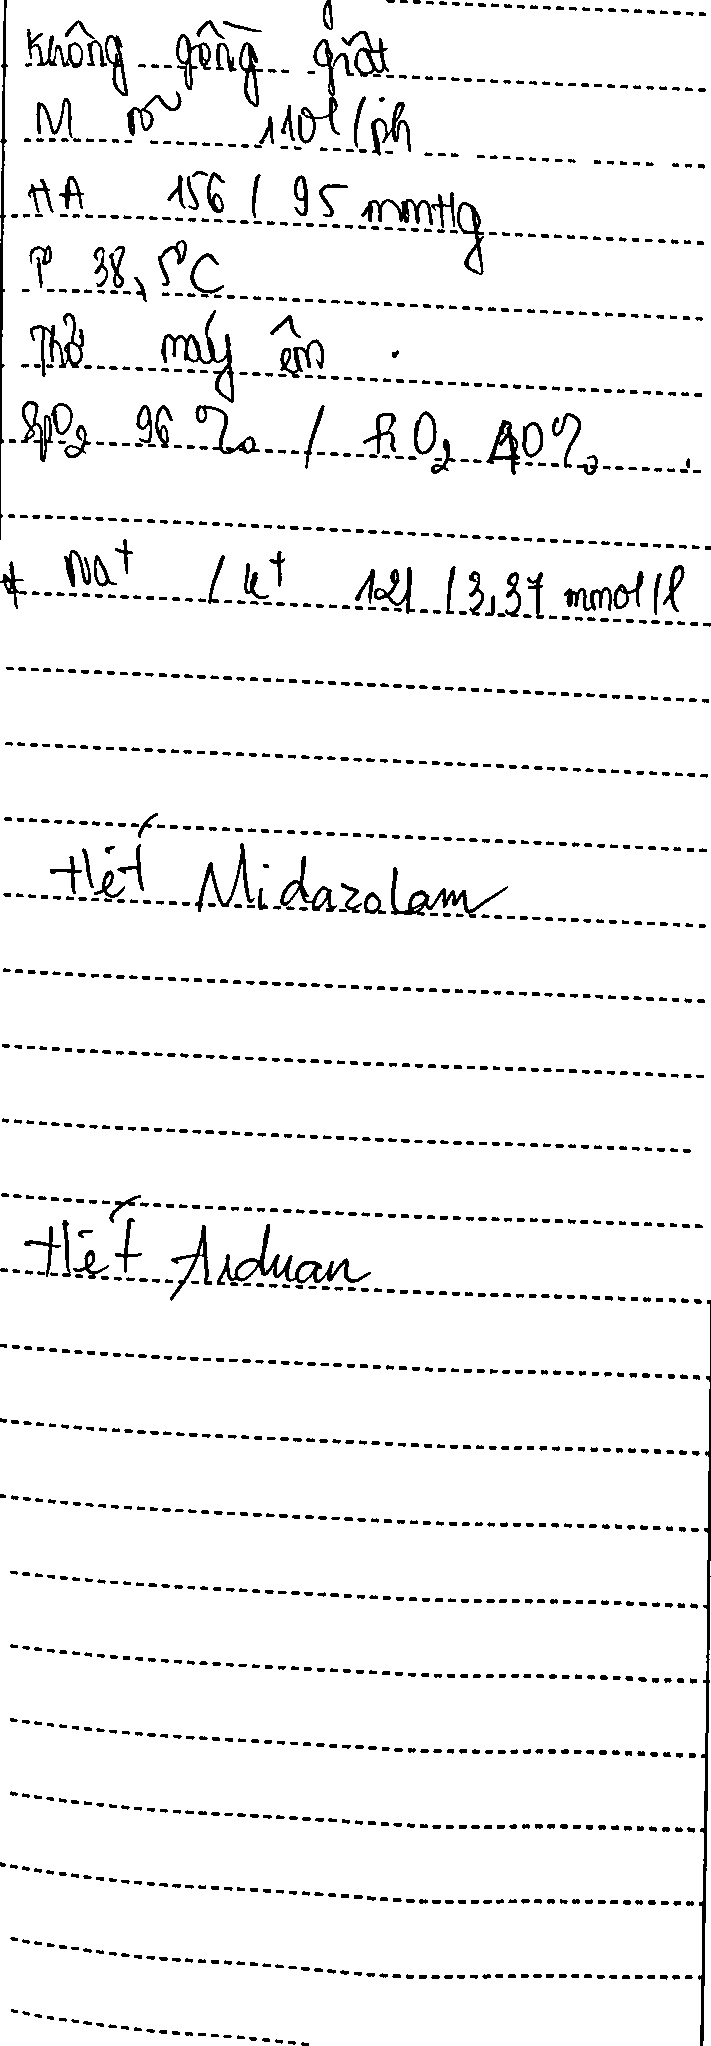 Không gồng giật
M rõ 110l/ph
HA 156 / 95 mmHg
T° 38,5°C
Thở máy êm .
SpO2 96% / FiO2 40% .
* Na+ / K+ 121 / 3,37 mmol/l
Hết Midazolam
Hết Arduan